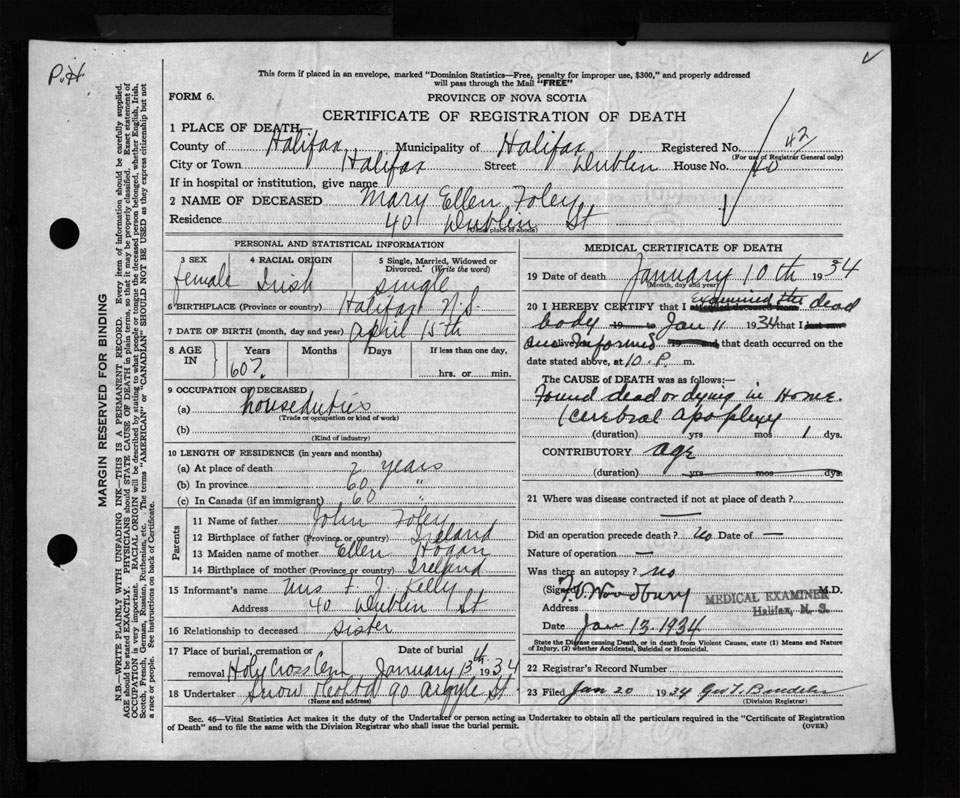 P.H.
This form if placed in an envelope, marked "Dominion Statistics—Free, penalty for improper use, $300," and properly addressed
will pass through the Mail "FREE"
FORM 6. PROVINCE OF NOVA SCOTIA
CERTIFICATE OF REGISTRATION OF DEATH
1 PLACE OF DEATH
County of Halifax Municipality of Halifax Registered No. 42
(For use of Registrar General only)
City or Town Halifax Street Dublin House No. 40
If in hospital or institution, give name
2 NAME OF DECEASED Mary Ellen Foley
Residence 40 Dublin St
(Usual place of abode)
PERSONAL AND STATISTICAL INFORMATION
3 SEX 4 RACIAL ORIGIN 5 Single, Married, Widowed or Divorced. (Write the word)
female Irish single
6 BIRTHPLACE (Province or country) Halifax N.S.
7 DATE OF BIRTH (month, day and year) April 15th
8 AGE IN Years Months Days If less than one day,
60? hrs. or min.
9 OCCUPATION OF DECEASED
(a) houseduties
(Trade or occupation or kind of work)
(b)
(Kind of industry)
10 LENGTH OF RESIDENCE (in years and months)
(a) At place of death 2 years
(b) In province 60 "
(c) In Canada (if an immigrant) 60 "
Parents
11 Name of father John Foley
12 Birthplace of father (Province or country) Ireland
13 Maiden name of mother Ellen Hogan
14 Birthplace of mother (Province or country) Ireland
15 Informant's name Mrs F. J. Kelly
Address 40 Dublin St
16 Relationship to deceased sister
17 Place of burial, cremation or removal Date of burial
Holy Cross Cem January 13th 1934
18 Undertaker Snow 90 Argyle St.
(Name and address)
MEDICAL CERTIFICATE OF DEATH
19 Date of death January 10th 1934
(Month, day and year)
20 I HEREBY CERTIFY that I examined the dead
body 19 to Jan 11 1934 that I
informed 19 that death occurred on the
date stated above, at 10 P. m.
The CAUSE of DEATH was as follows:—
Found dead or dying in Home.
(Cerebral apoplexy
(duration) yrs mos 1 dys.
CONTRIBUTORY age
(duration) yrs mos dys.
21 Where was disease contracted if not at place of death?
—
Did an operation precede death? No Date of —
Nature of operation —
Was there an autopsy? no
(Signed) F.V. Woodbury M.D.
MEDICAL EXAMINER
Halifax, N. S.
Address
Date Jan 13 1934
State the Disease causing Death, or in death from Violent Causes, state (1) Means and Nature
of Injury, (2) whether Accidental, Suicidal or Homicidal.
22 Registrar's Record Number
23 Filed Jan 20 1934
(Division Registrar)
Sec. 46—Vital Statistics Act makes it the duty of the Undertaker or person acting as Undertaker to obtain all the particulars required in the "Certificate of Registration
of Death" and to file the same with the Division Registrar who shall issue the burial permit. (OVER)
MARGIN RESERVED FOR BINDING
N.B.—WRITE PLAINLY WITH UNFADING INK—THIS IS A PERMANENT RECORD. Every item of information should be carefully supplied.
AGE should be stated EXACTLY. PHYSICIANS should STATE CAUSE OF DEATH in plain terms, so that it may be properly classified. Exact statement of
OCCUPATION is very important. RACIAL ORIGIN will be described by stating to what people or tongue the deceased person belonged, whether English, Irish,
Scotch, French, German, Russian, Ruthenian, etc. The terms "AMERICAN" or "CANADIAN" SHOULD NOT BE USED as they express citizenship but not
a race or people. See instructions on back of Certificate.